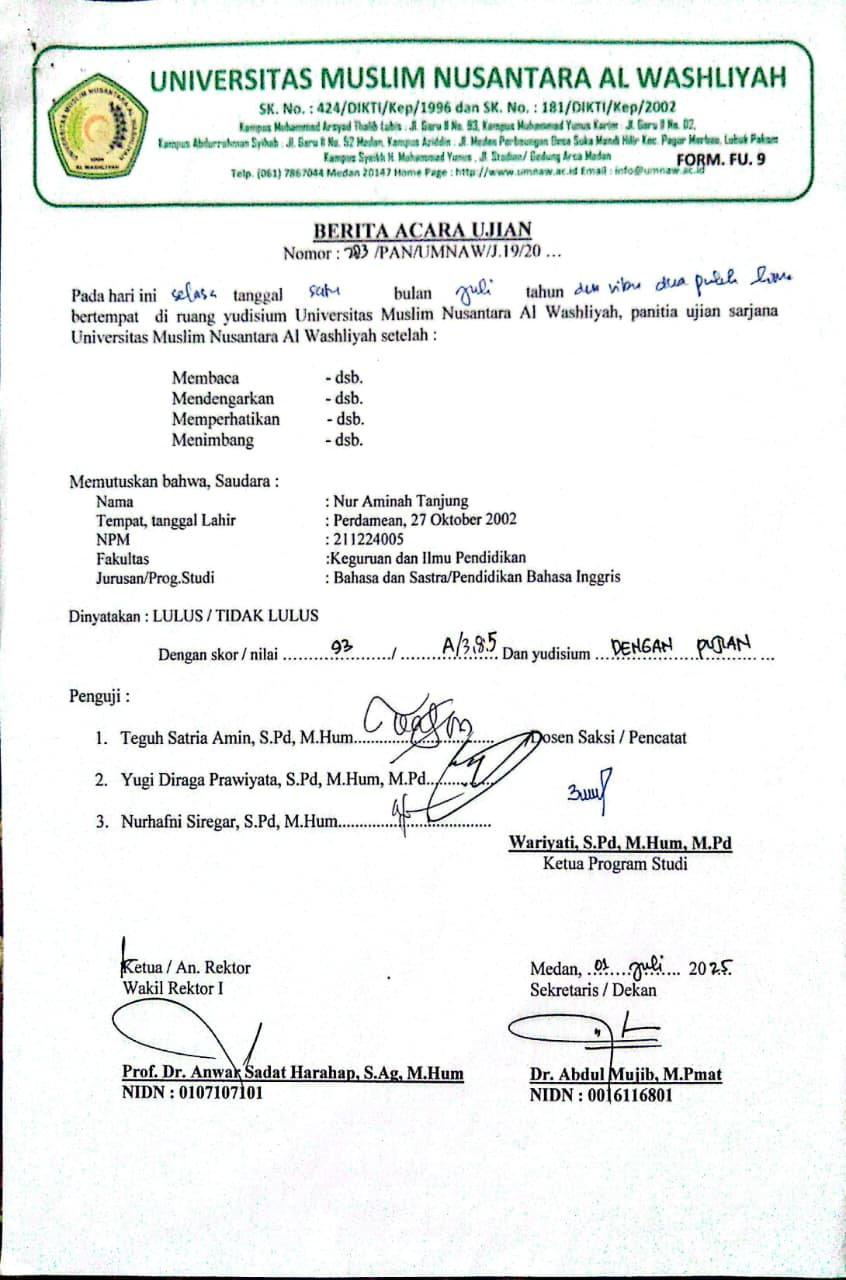 UNIVERSITAS MUSLIM NUSANTARA AL WASHLIYAH
SK. No. : 424/DIKTI/Kep/1996 dan SK. No. : 181/DIKTI/Kep/2002
Kampus Muhammad Arsyad Thalib Lubis : Jl. Garu II No. 93, Kampus Muhammad Yunus Karim : Jl. Garu II No. 02,
Kampus Abdurrahman Syihab : Jl. Garu II No. 52 Medan, Kampus Aziddin : Jl. Medan Perbaungan Desa Suka Mandi Hilir Kec. Pagar Merbau, Lubuk Pakam
Kampus Syeikh H. Muhammad Yunus , Jl. Stadion/ Gedung Arca Medan
FORM. FU. 9
Telp. (061) 7867044 Medan 20147 Home Page : http://www.umnaw.ac.id Email : info@umnaw.ac.id
UNIVERSITAS MUSLIM NUSANTARA AL WASHLIYAH
BERITA ACARA UJIAN
Nomor : 783 /PAN/UMNAW/J.19/20 ...
Pada hari ini selasa tanggal satu bulan juli tahun dua ribu dua puluh lima
bertempat di ruang yudisium Universitas Muslim Nusantara Al Washliyah, panitia ujian sarjana
Universitas Muslim Nusantara Al Washliyah setelah :
Membaca - dsb.
Mendengarkan - dsb.
Memperhatikan - dsb.
Menimbang - dsb.
Memutuskan bahwa, Saudara :
Nama : Nur Aminah Tanjung
Tempat, tanggal Lahir : Perdamean, 27 Oktober 2002
NPM : 211224005
Fakultas :Keguruan dan Ilmu Pendidikan
Jurusan/Prog.Studi : Bahasa dan Sastra/Pendidikan Bahasa Inggris
Dinyatakan : LULUS / TIDAK LULUS
Dengan skor / nilai ......93....../ ......A/3,85 Dan yudisium ...DENGAN PUJIAN... ...
Penguji :
1. Teguh Satria Amin, S.Pd, M.Hum............................ Dosen Saksi / Pencatat
2. Yugi Diraga Prawiyata, S.Pd, M.Hum, M.Pd..............
3. Nurhafni Siregar, S.Pd, M.Hum...............................
Wariyati, S.Pd, M.Hum, M.Pd
Ketua Program Studi
Ketua / An. Rektor
Wakil Rektor I
Medan, ..01....juli.... 2025.
Sekretaris / Dekan
Prof. Dr. Anwar Sadat Harahap, S.Ag, M.Hum
NIDN : 0107107101
Dr. Abdul Mujib, M.Pmat
NIDN : 0016116801